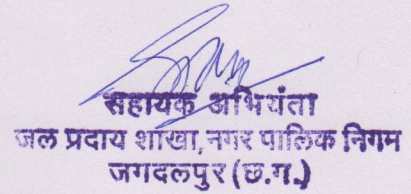 सहायक अभियंता
जल प्रदाय शाखा, नगर पालिक निगम
जगदलपुर (छ.ग.)